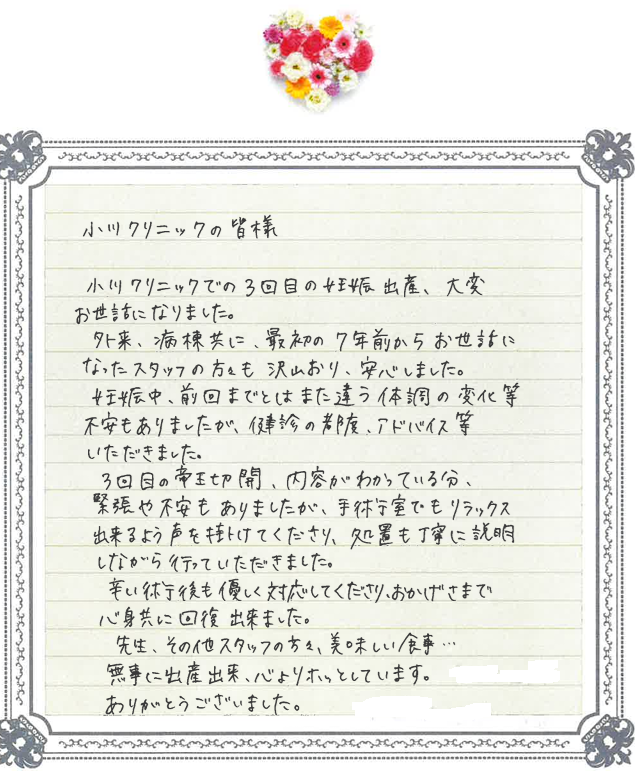 小川クリニックの皆様
小川クリニックでの3回目の妊娠出産、大変
お世話になりました。
外来、病棟共に、最初の7年前からお世話に
なったスタッフの方々も沢山おり、安心しました。
妊娠中、前回までとはまた違う体調の変化等
不安もありましたが、健診の都度、アドバイス等
いただきました。
3回目の帝王切開、内容がわかっている分、
緊張や不安もありましたが、手術室でもリラックス
出来るよう声を掛けてくださり、処置も丁寧に説明
しながら行っていただきました。
辛い術後も優しく対応してくださり、おかげさまで
心身共に回復出来ました。
先生、その他スタッフの方々、美味しい食事…
無事に出産出来、心よりホッとしています。
ありがとうございました。